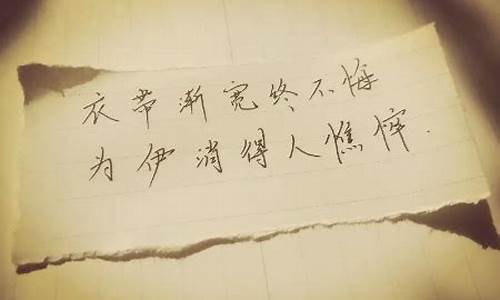 衣带渐宽终不悔
为伊消得人憔悴.